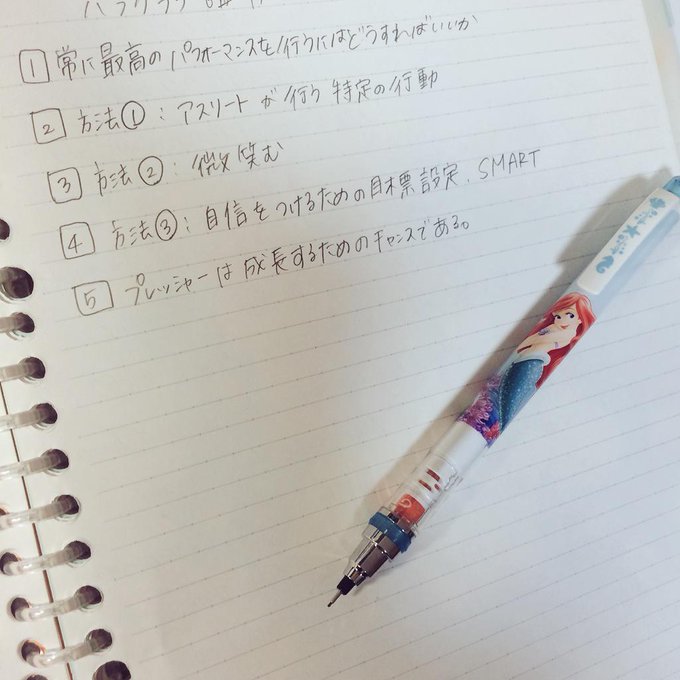 パラグラフ
1 常に最高のパフォーマンスを行うにはどうすればいいか
2 方法①：アスリートが行う特定の行動
3 方法②：微笑む
4 方法③：自信をつけるための目標設定、SMART
5 プレッシャーは成長するためのチャンスである。